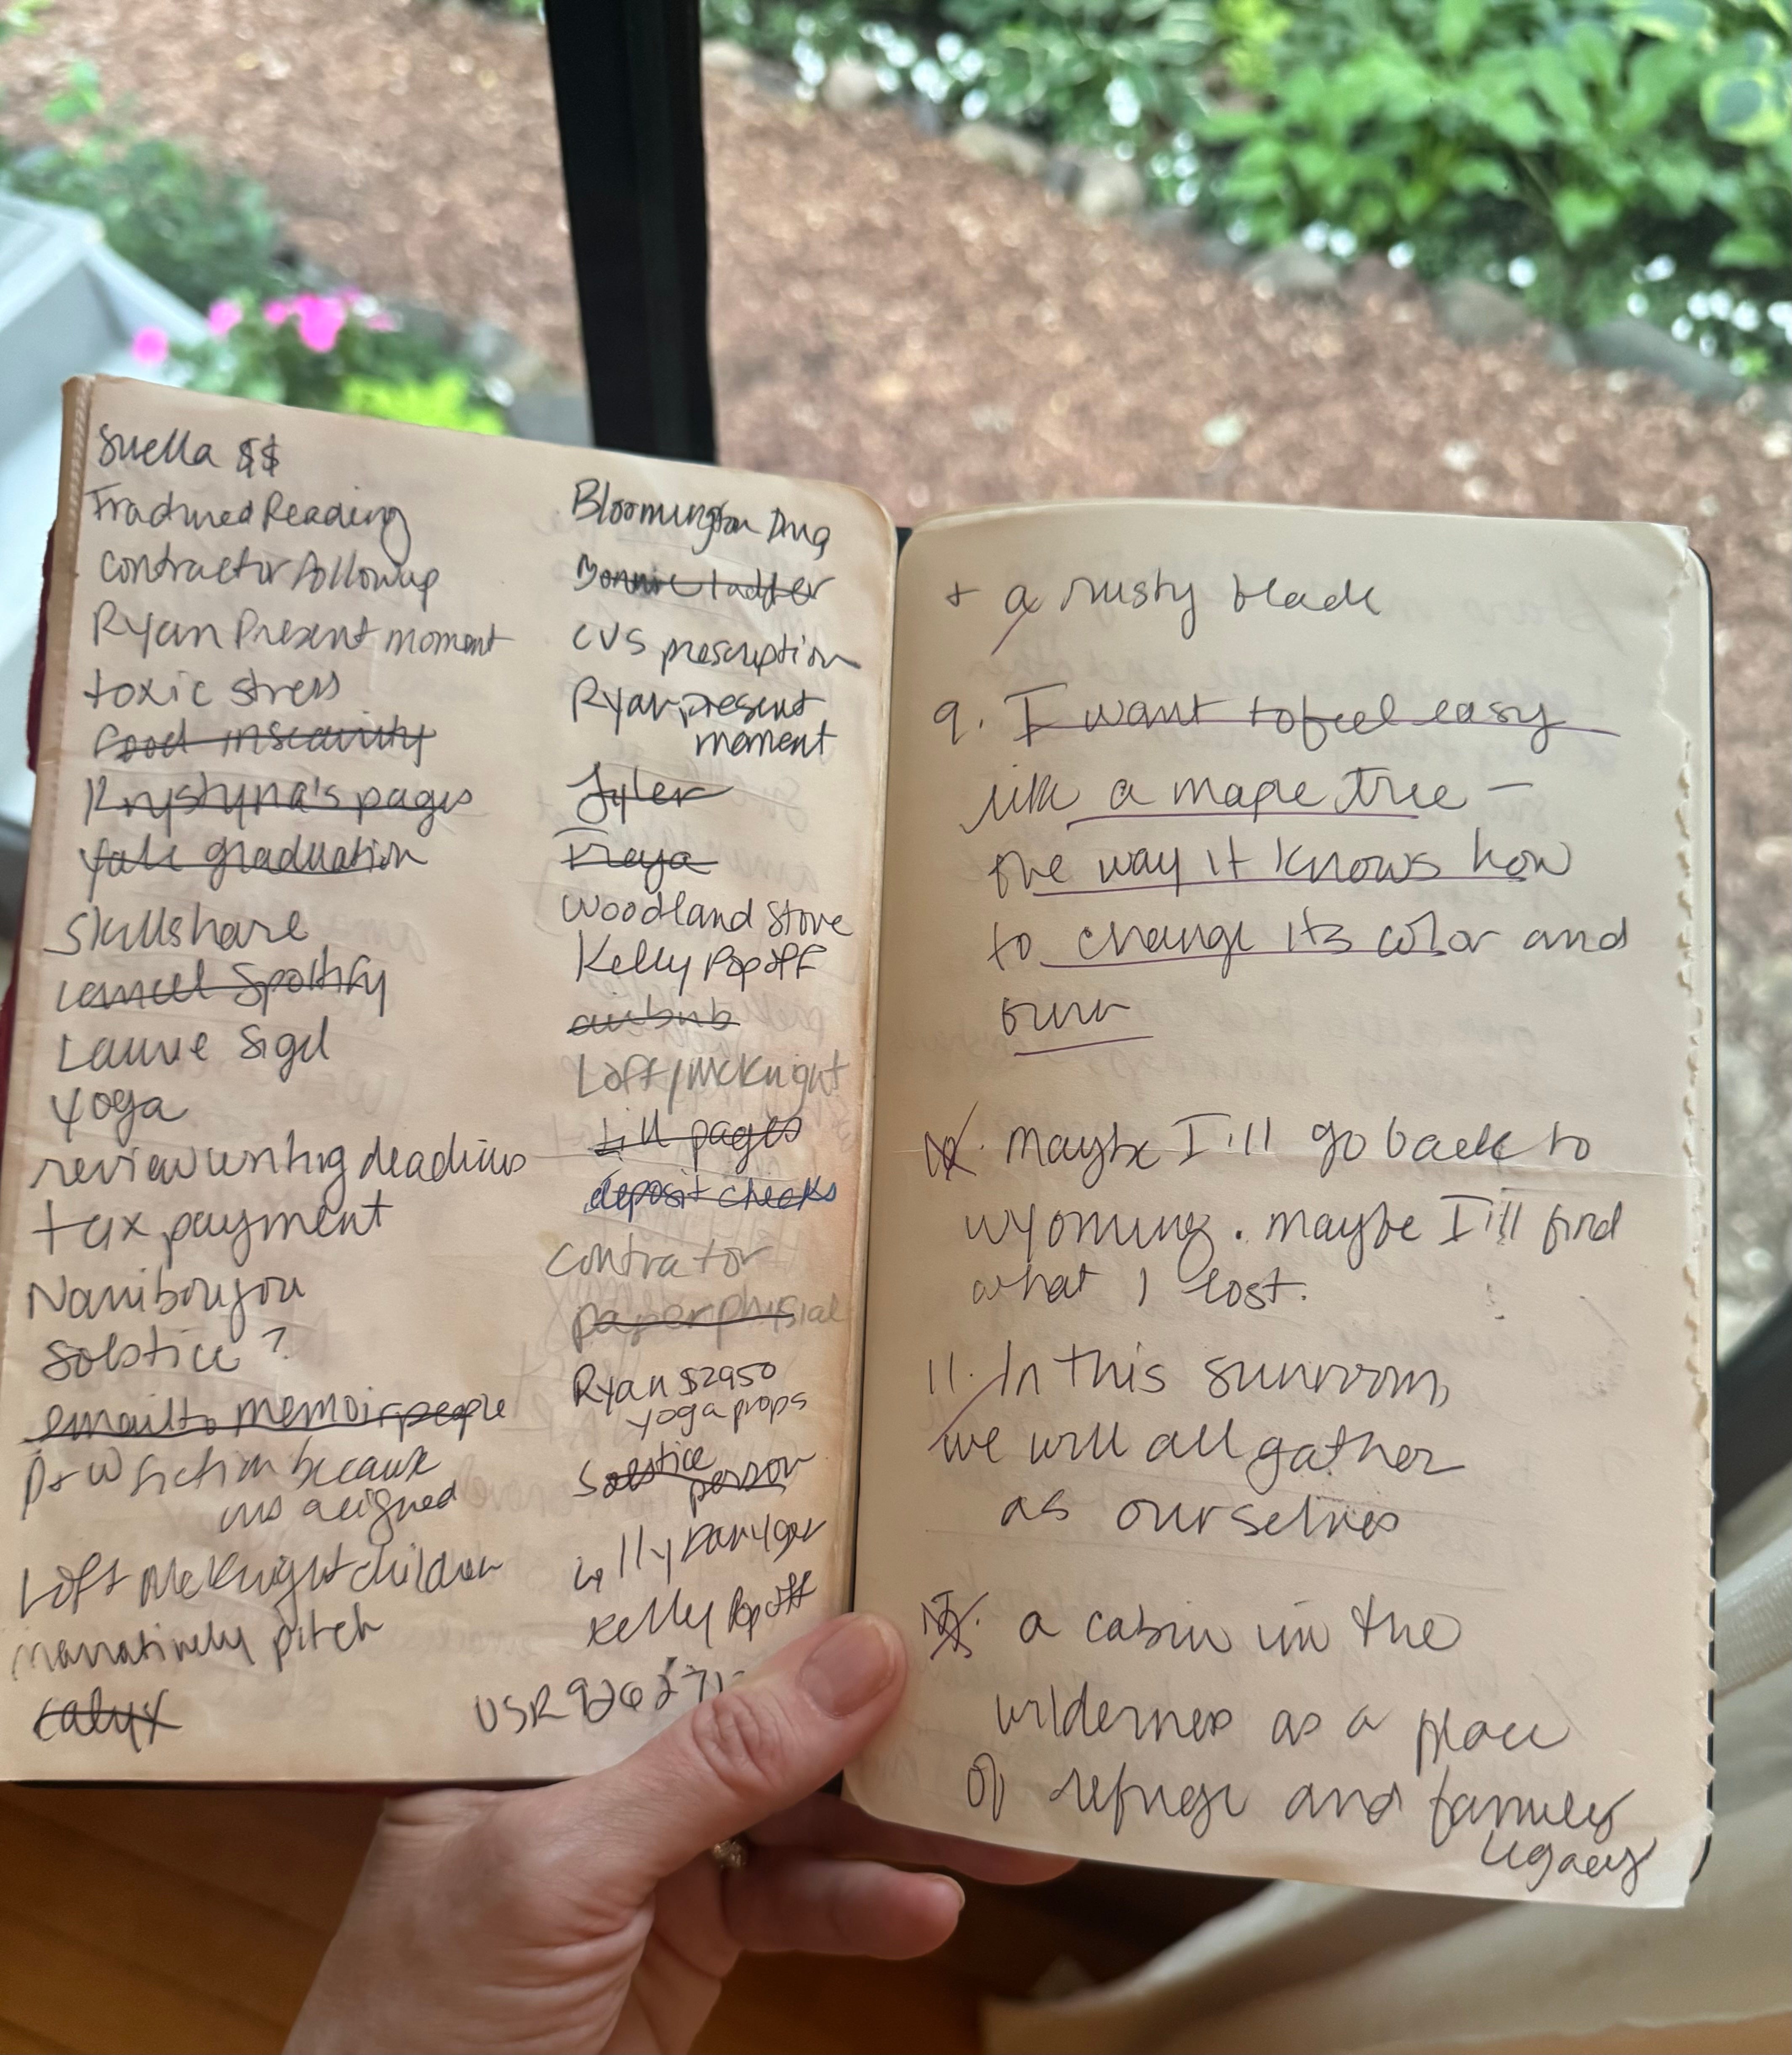 Suella $$
Fractured Reading
Contractor followup
Ryan Present moment
toxic stress
food insecurity
Krystyna's pages
Yale graduation
Skillshare
cancel Spotify
Laurie Sigel
Yoga
review writing deadlines
tax payment
Naniboujou
Solstice?
email to memoir people
P+W fiction because
aligned
Loft McKnight children
narratively pitch
calyx
Bloomington Drug
Bonnie ladder
CVS prescription
Ryan present
moment
Tyler
Freya
Woodland Stove
Kelly Popoff
airbnb
Loft/McKnight
till pages
deposit checks
contrator
paper physial
Ryan $2950
yoga props
Solstice
person
Kelly Popoff
+ a rusty blade
9. I want to feel easy
like a maple tree —
the way it knows how
to change its color and
burn
maybe I'll go back to
wyoming. maybe I'll find
what I lost.
11. In this sunroom,
we will all gather
as ourselves
a cabin in the
wilderness as a place
of refuge and families
legacy